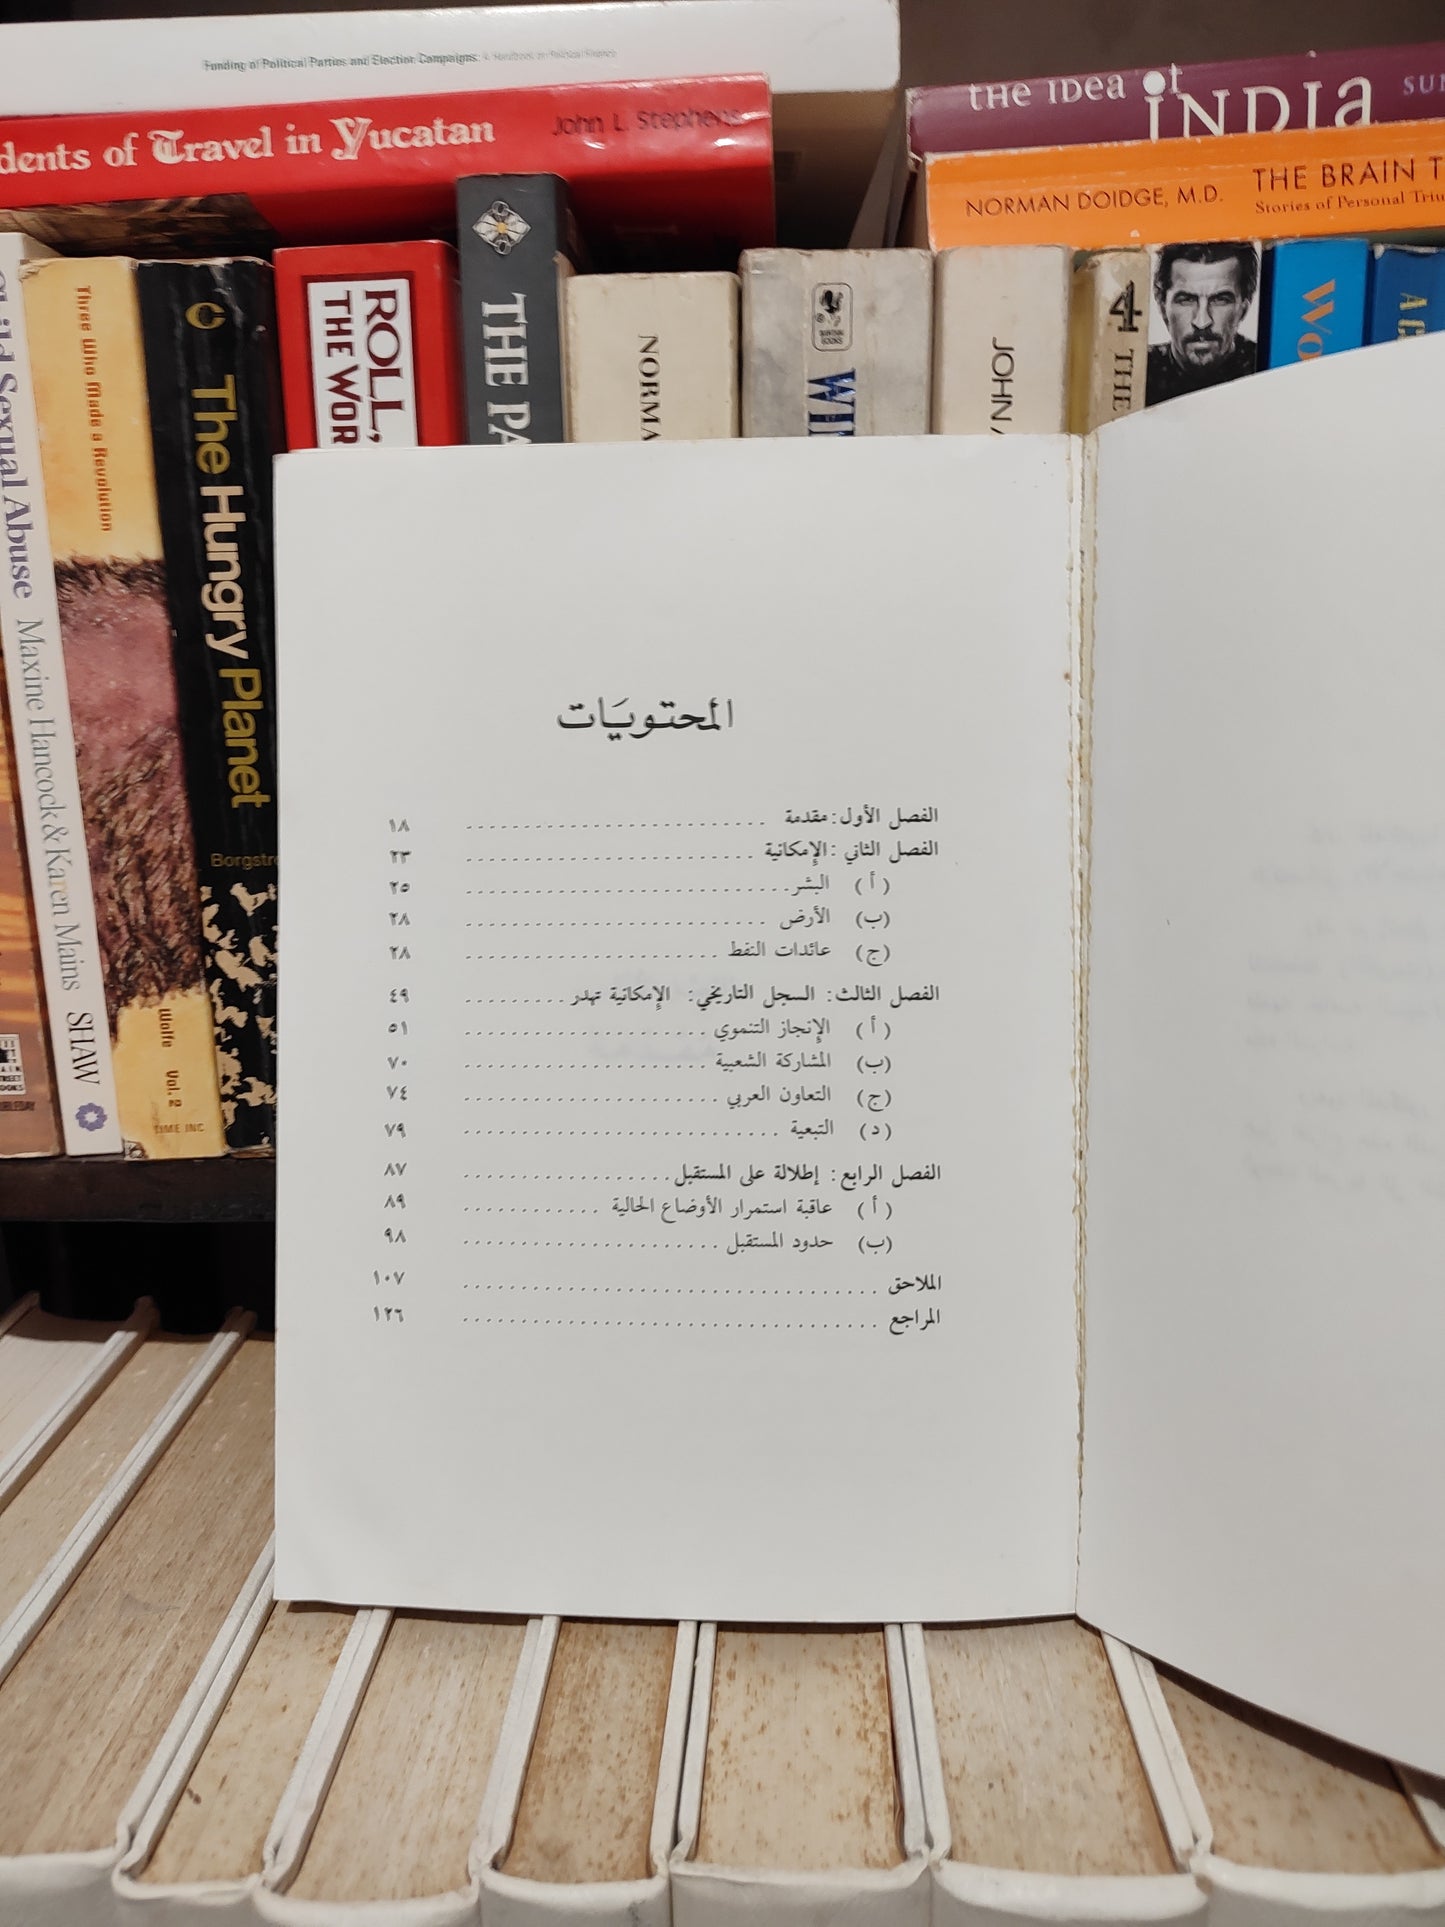 Funding of Political Parties and Election Campaigns: A Handbook on Political Finance
dents of Travel in Yucatan John L. Stephens
THE IDEA of INDIA
NORMAN DOIDGE, M.D. THE BRAIN T
Stories of Personal Triu
Child Sexual Abuse Maxine Hancock & Karen Mains SHAW
Three Who Made a Revolution
Wolfe Vol. 2
TIME INC
The Hungry Planet
Borgstr
ROLL,
THE WOR
THE PA
NORMA
BANTAM BOOKS
WIL
JOHN
4 THE
WO
المحتويات
الفصل الأول: مقدمة ١٨
الفصل الثاني: الإمكانية ٢٣
(أ) البشر ٢٥
(ب) الأرض ٢٨
(ج) عائدات النفط ٢٨
الفصل الثالث: السجل التاريخي: الإمكانية تهدر ٤٩
(أ) الإنجاز التنموي ٥١
(ب) المشاركة الشعبية ٧٠
(ج) التعاون العربي ٧٤
(د) التبعية ٧٩
الفصل الرابع: إطلالة على المستقبل ٨٧
(أ) عاقبة استمرار الأوضاع الحالية ٨٩
(ب) حدود المستقبل ٩٨
الملاحق ١٠٧
المراجع ١٢٦